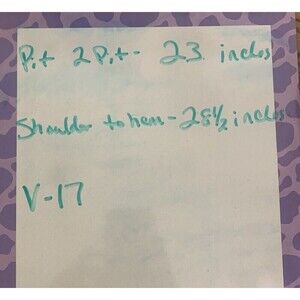 Pit 2 Pit - 23 inches
Shoulder to hem - 28½ inches
V-17